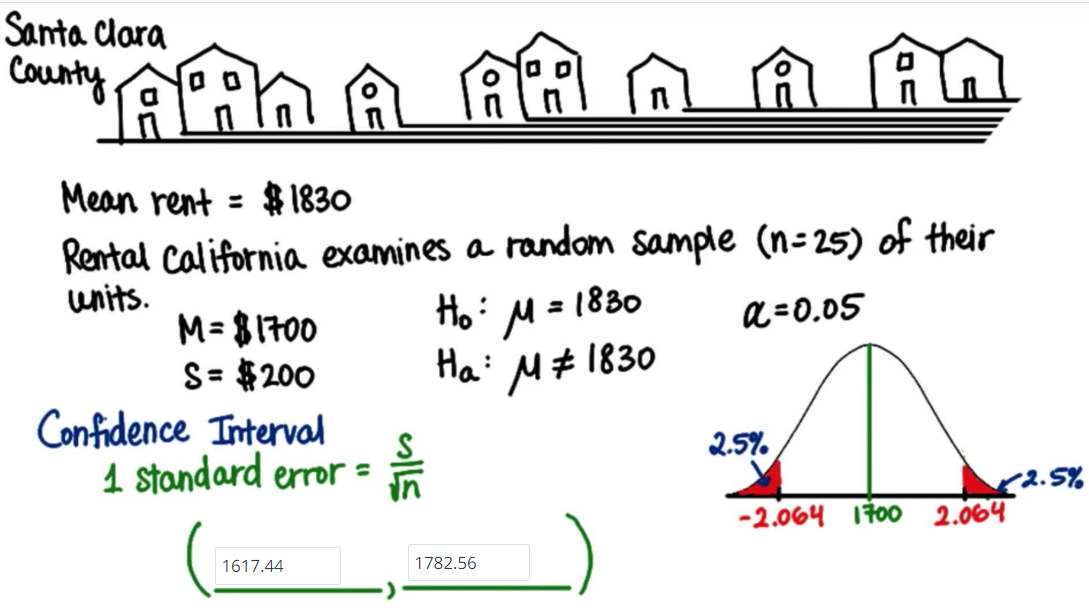 Santa Clara
County
Mean rent = $1830
Rental California examines a random sample (n=25) of their
units.
M = $1700
S = $200
H₀: μ = 1830
Hₐ: μ ≠ 1830
α=0.05
Confidence Interval
1 standard error = S/√n
(1617.44, 1782.56)
2.5%
2.5%
-2.064 1700 2.064